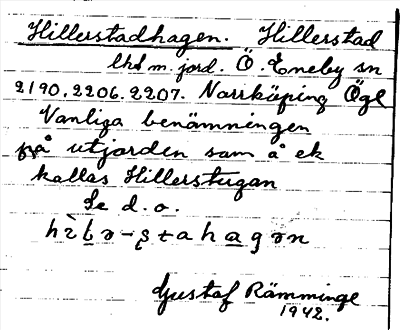 Hillerstadhagen. Hillerstad
lht m. jord. Ö. Eneby sn
2190. 2206. 2207. Norrköping Ögl
Vanliga benämningen
på utjorden som å ek
kallas Hillerstugan
Se d. o.
Gustaf Rämminge
1942.